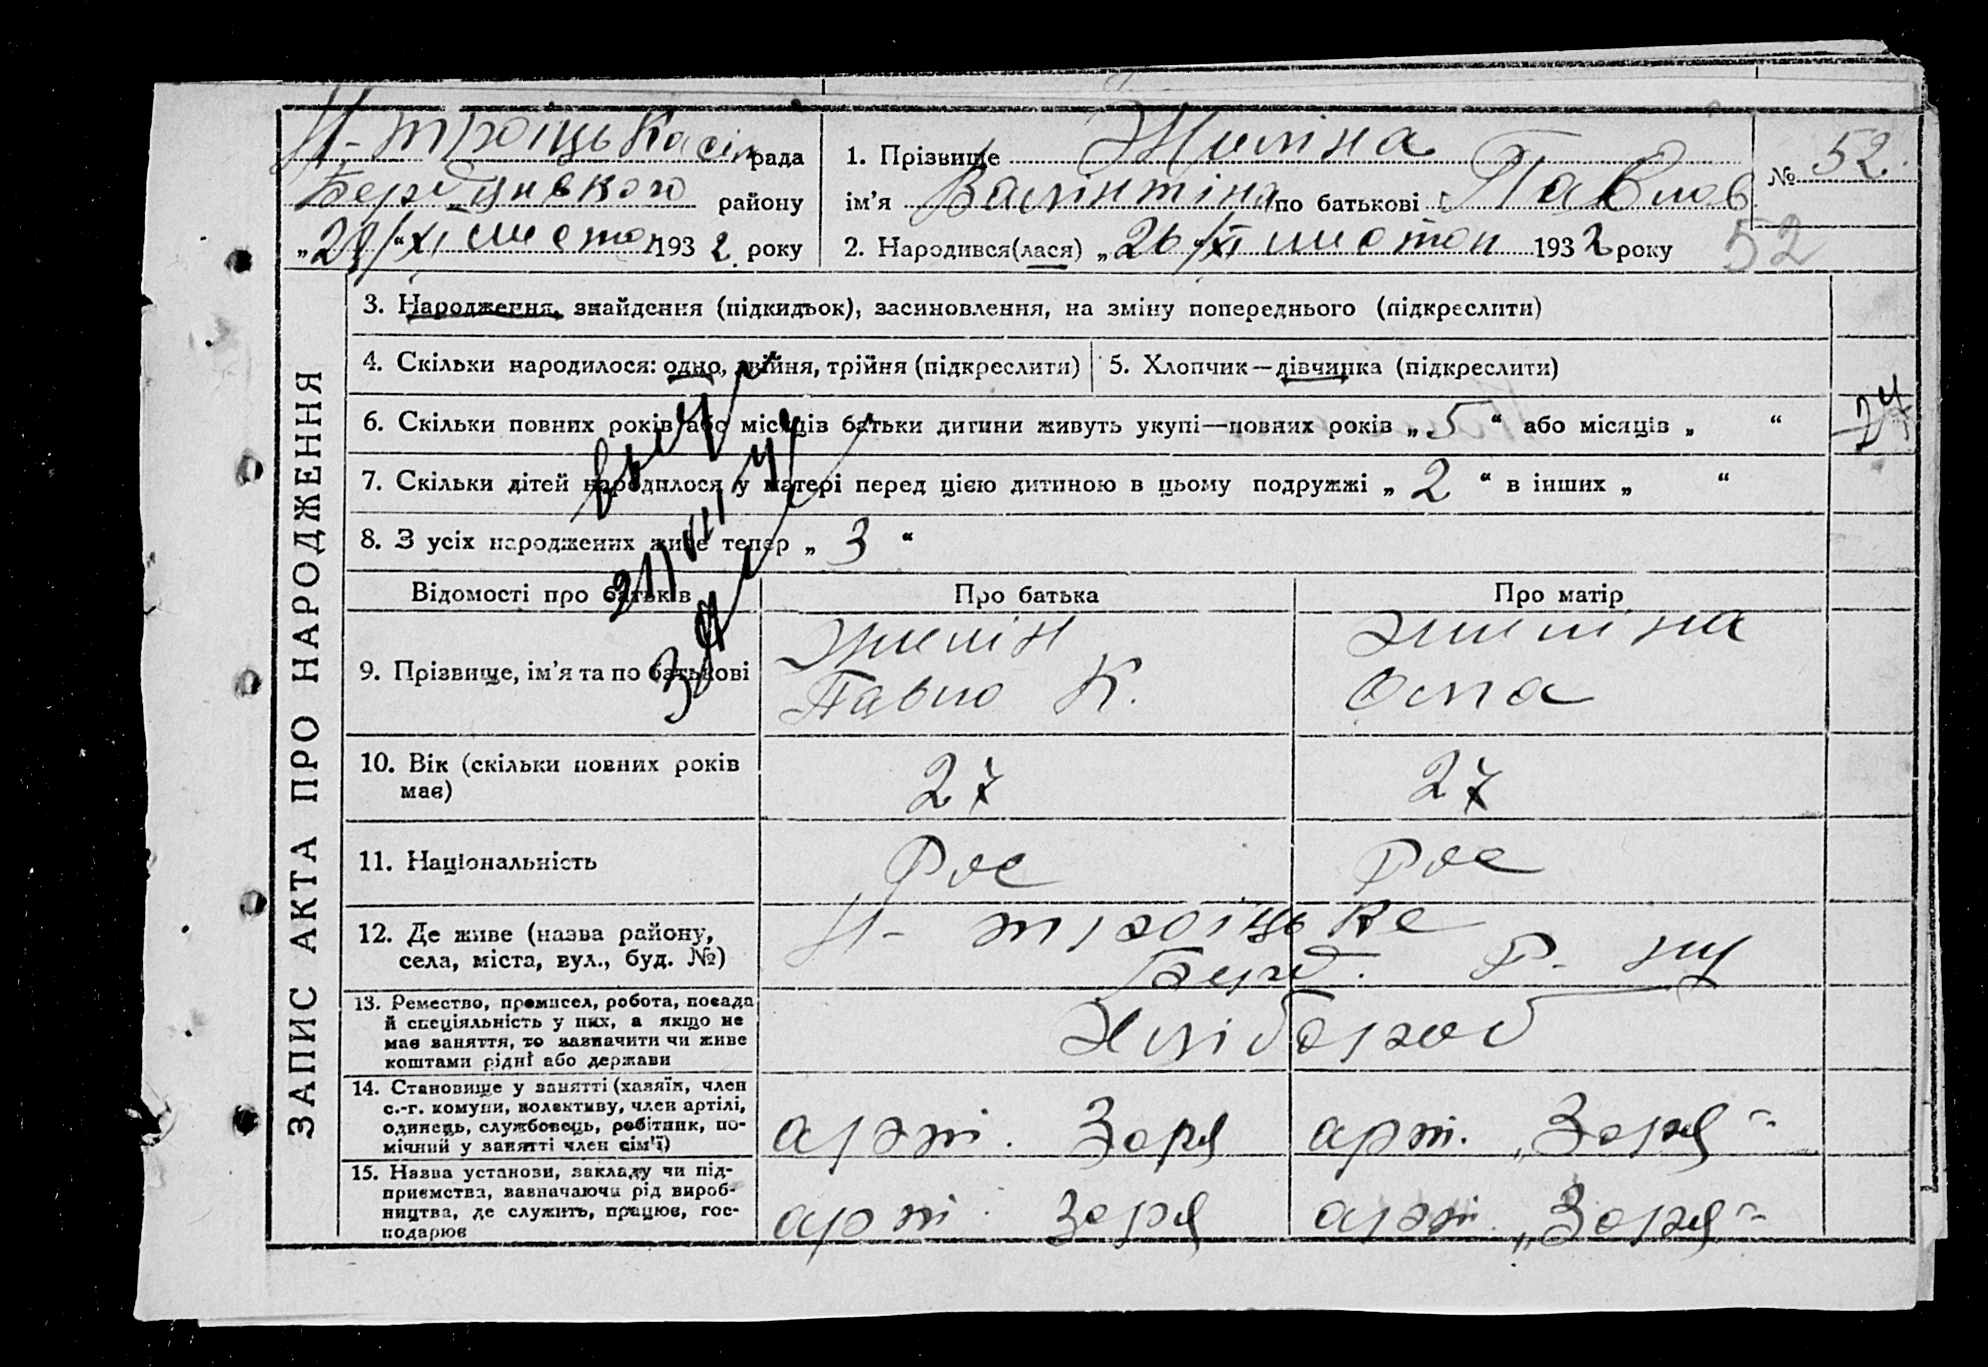 Н-Троіцька сіл рада
Бердянського району
„29/XI листоп 1932 року
1. Прізвище Жиліна
№ 52.
ім’я Валінтіна по батькові Павлов
2. Народився(лася) „26/XI листоп 1932 року
52
ЗАПИС АКТА ПРО НАРОДЖЕННЯ
3. Народження, знайдення (підкидьок), засиновлення, на зміну попереднього (підкреслити)
4. Скільки народилося: одно, двійня, трійня (підкреслити) 5. Хлопчик—дівчинка (підкреслити)
6. Скільки повних років або місяців батьки дитини живуть укупі—повних років „ 5 “ або місяців „ “
24
7. Скільки дітей народилося у матері перед цією дитиною в цьому подружжі „ 2 “ в інших „ “
8. З усіх народжених живе тепер „ 3 “
Відомості про батьків Про батька Про матір
9. Прізвище, ім’я та по батькові
Жилін
Павло К.
Жиліна
Олпа
10. Вік (скільки повних років
має)
27 27
11. Національність Рос Рос
12. Де живе (назва району,
села, міста, вул., буд. №)
Н- троіцьке
Берд. Р-ну
13. Ремество, промисел, робота, посада
й спеціяльність у них, а якщо не
має заняття, то зазначити чи живе
коштами рідні або держави
Хлібороб
14. Становище у занятті (хазяїн, член
с.-г. комуни, колективу, член артілі,
одинець, службовець, робітник, по-
мічний у занятті член сім’ї)
арт. Зоря арт. „Зоря“
15. Назва установи, закладу чи під-
приємства, зазначаючи рід вироб-
ництва, де служить, працює, гос-
подарює
арт. Зоря арт. „Зоря“